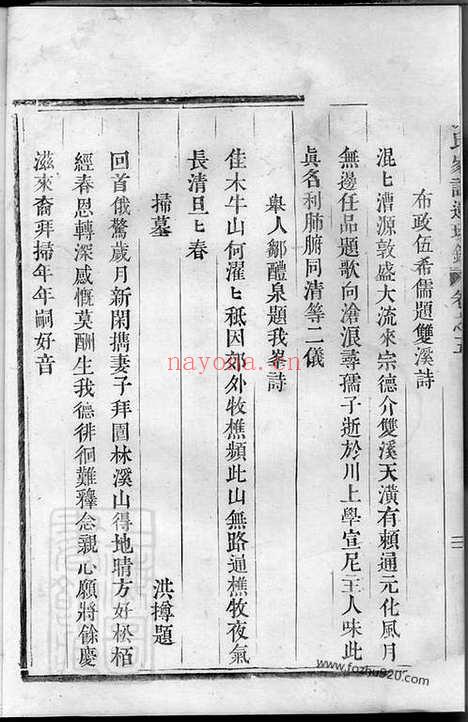 布政伍希儒題雙溪詩
混〻漕源敦盛大流來宗德介雙溪天潢有賴通元化風月
無邊任品題歌向滄浪尋孺子逝於川上學宣尼主人味此
眞各利肺腑同清等二儀
舉人鄒醴泉題我峯詩
佳木牛山何濯〻秖因郊外牧樵頻此山無路通樵牧夜氣
長清旦〻春
掃墓 洪摶題
回首俄驚歲月新閑攜妻子拜園林溪山得地晴方好松栢
經春恩轉深感慨莫酬生我德徘徊難釋念親心願將餘慶
滋來裔拜掃年年嗣好音
nayona.cn
www.fozhu920.com